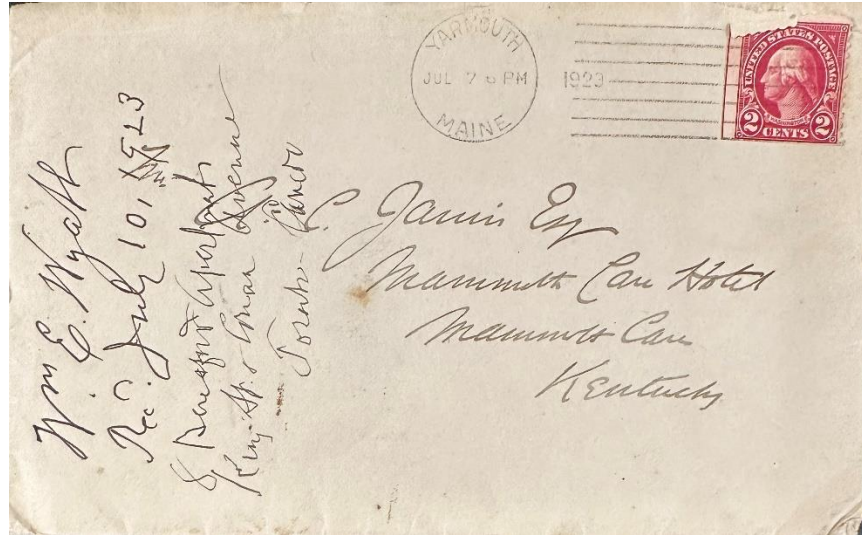 YARMOUTH
JUL 7 6 PM
1923
MAINE
UNITED STATES POSTAGE
WASHINGTON
2 CENTS 2
Esq
Mammoth Cave Hotel
Mammoth Cave
Kentucky
Wm E. Wyatt
Rec'd. July 10, 1923
8 Apartments
King St. & Avenue
Toronto Canada